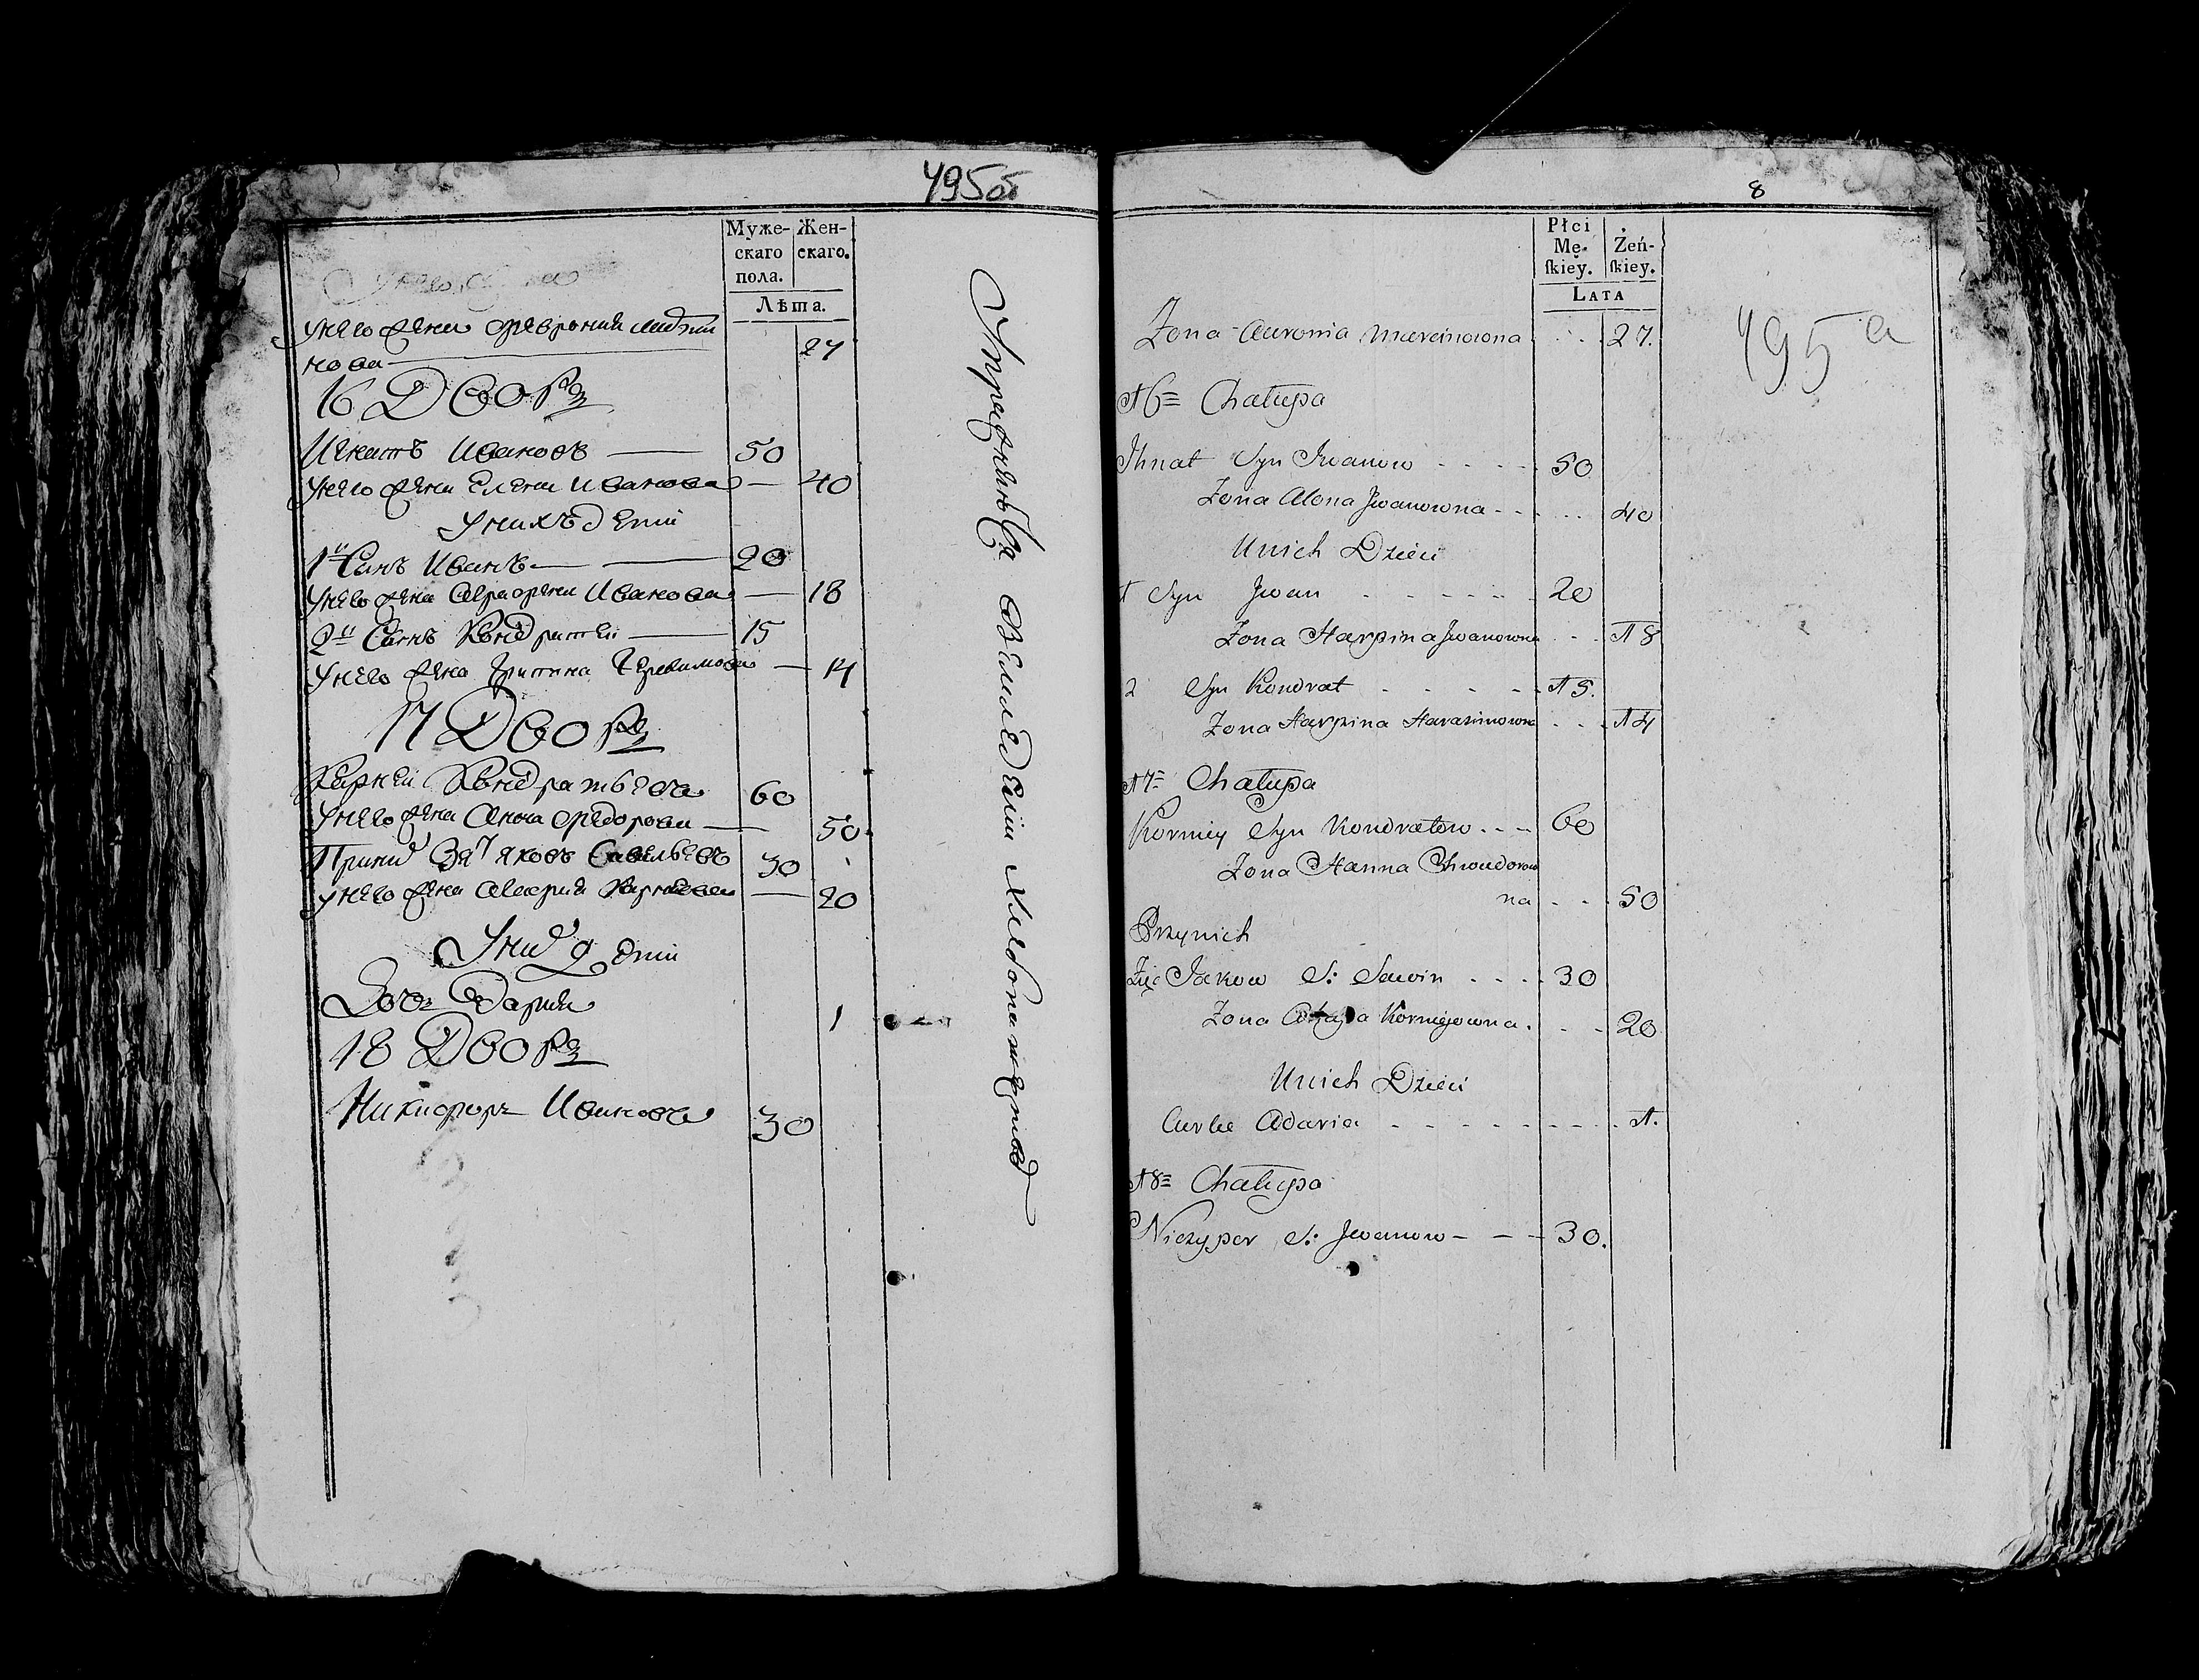 495об
Муже-
скаго
пола.
Жен-
скаго.
Лѣта.
унего жена Феврония Марти
нова 27
16 Дворъ
Игнатъ Ивановъ 50
унего жена Елена Иванова 40
унихъ дети
1й Сынъ Иванъ 20
унего жена Аграфена Иванова 18
2й Сынъ Кондратеи 15
унего жена 14
17 Дворъ
Карнеи Кондратьевъ 60
унего жена Анна Федорова 50
Приних Зят Яковъ Савельевъ 30
унего жена 20
Уних дети
Дочь Адария 1
18 Дворъ
Никифоръ Ивановъ 30
Упражняются въ земледелии и хлебопашестве
8
495а
Płci
Mę-
ſkiey.
Żeń-
ſkiey.
LATA
Żona Auronia Marcinowna 27.
16 Chałupa
Ihnat Syn Iwanow 50
Żona Alona Iwanowna 40
Unich Dzieci
1 Syn Iwan 20
Żona Harpina Iwanowna 18
2 Syn Kondrat 15.
Żona Harpina Harasimowna 14
17 Chałupa
Korniey Syn Kondratow 60
Żona Hanna Chwiedorow
na 50
Przynich
Zięć Jakow S: Sawin 30
Żona Korniejowna. 20
Unich Dzieci
Curke Adaria 1.
18 Chałupa
Niczypor S: Iwanow 30.